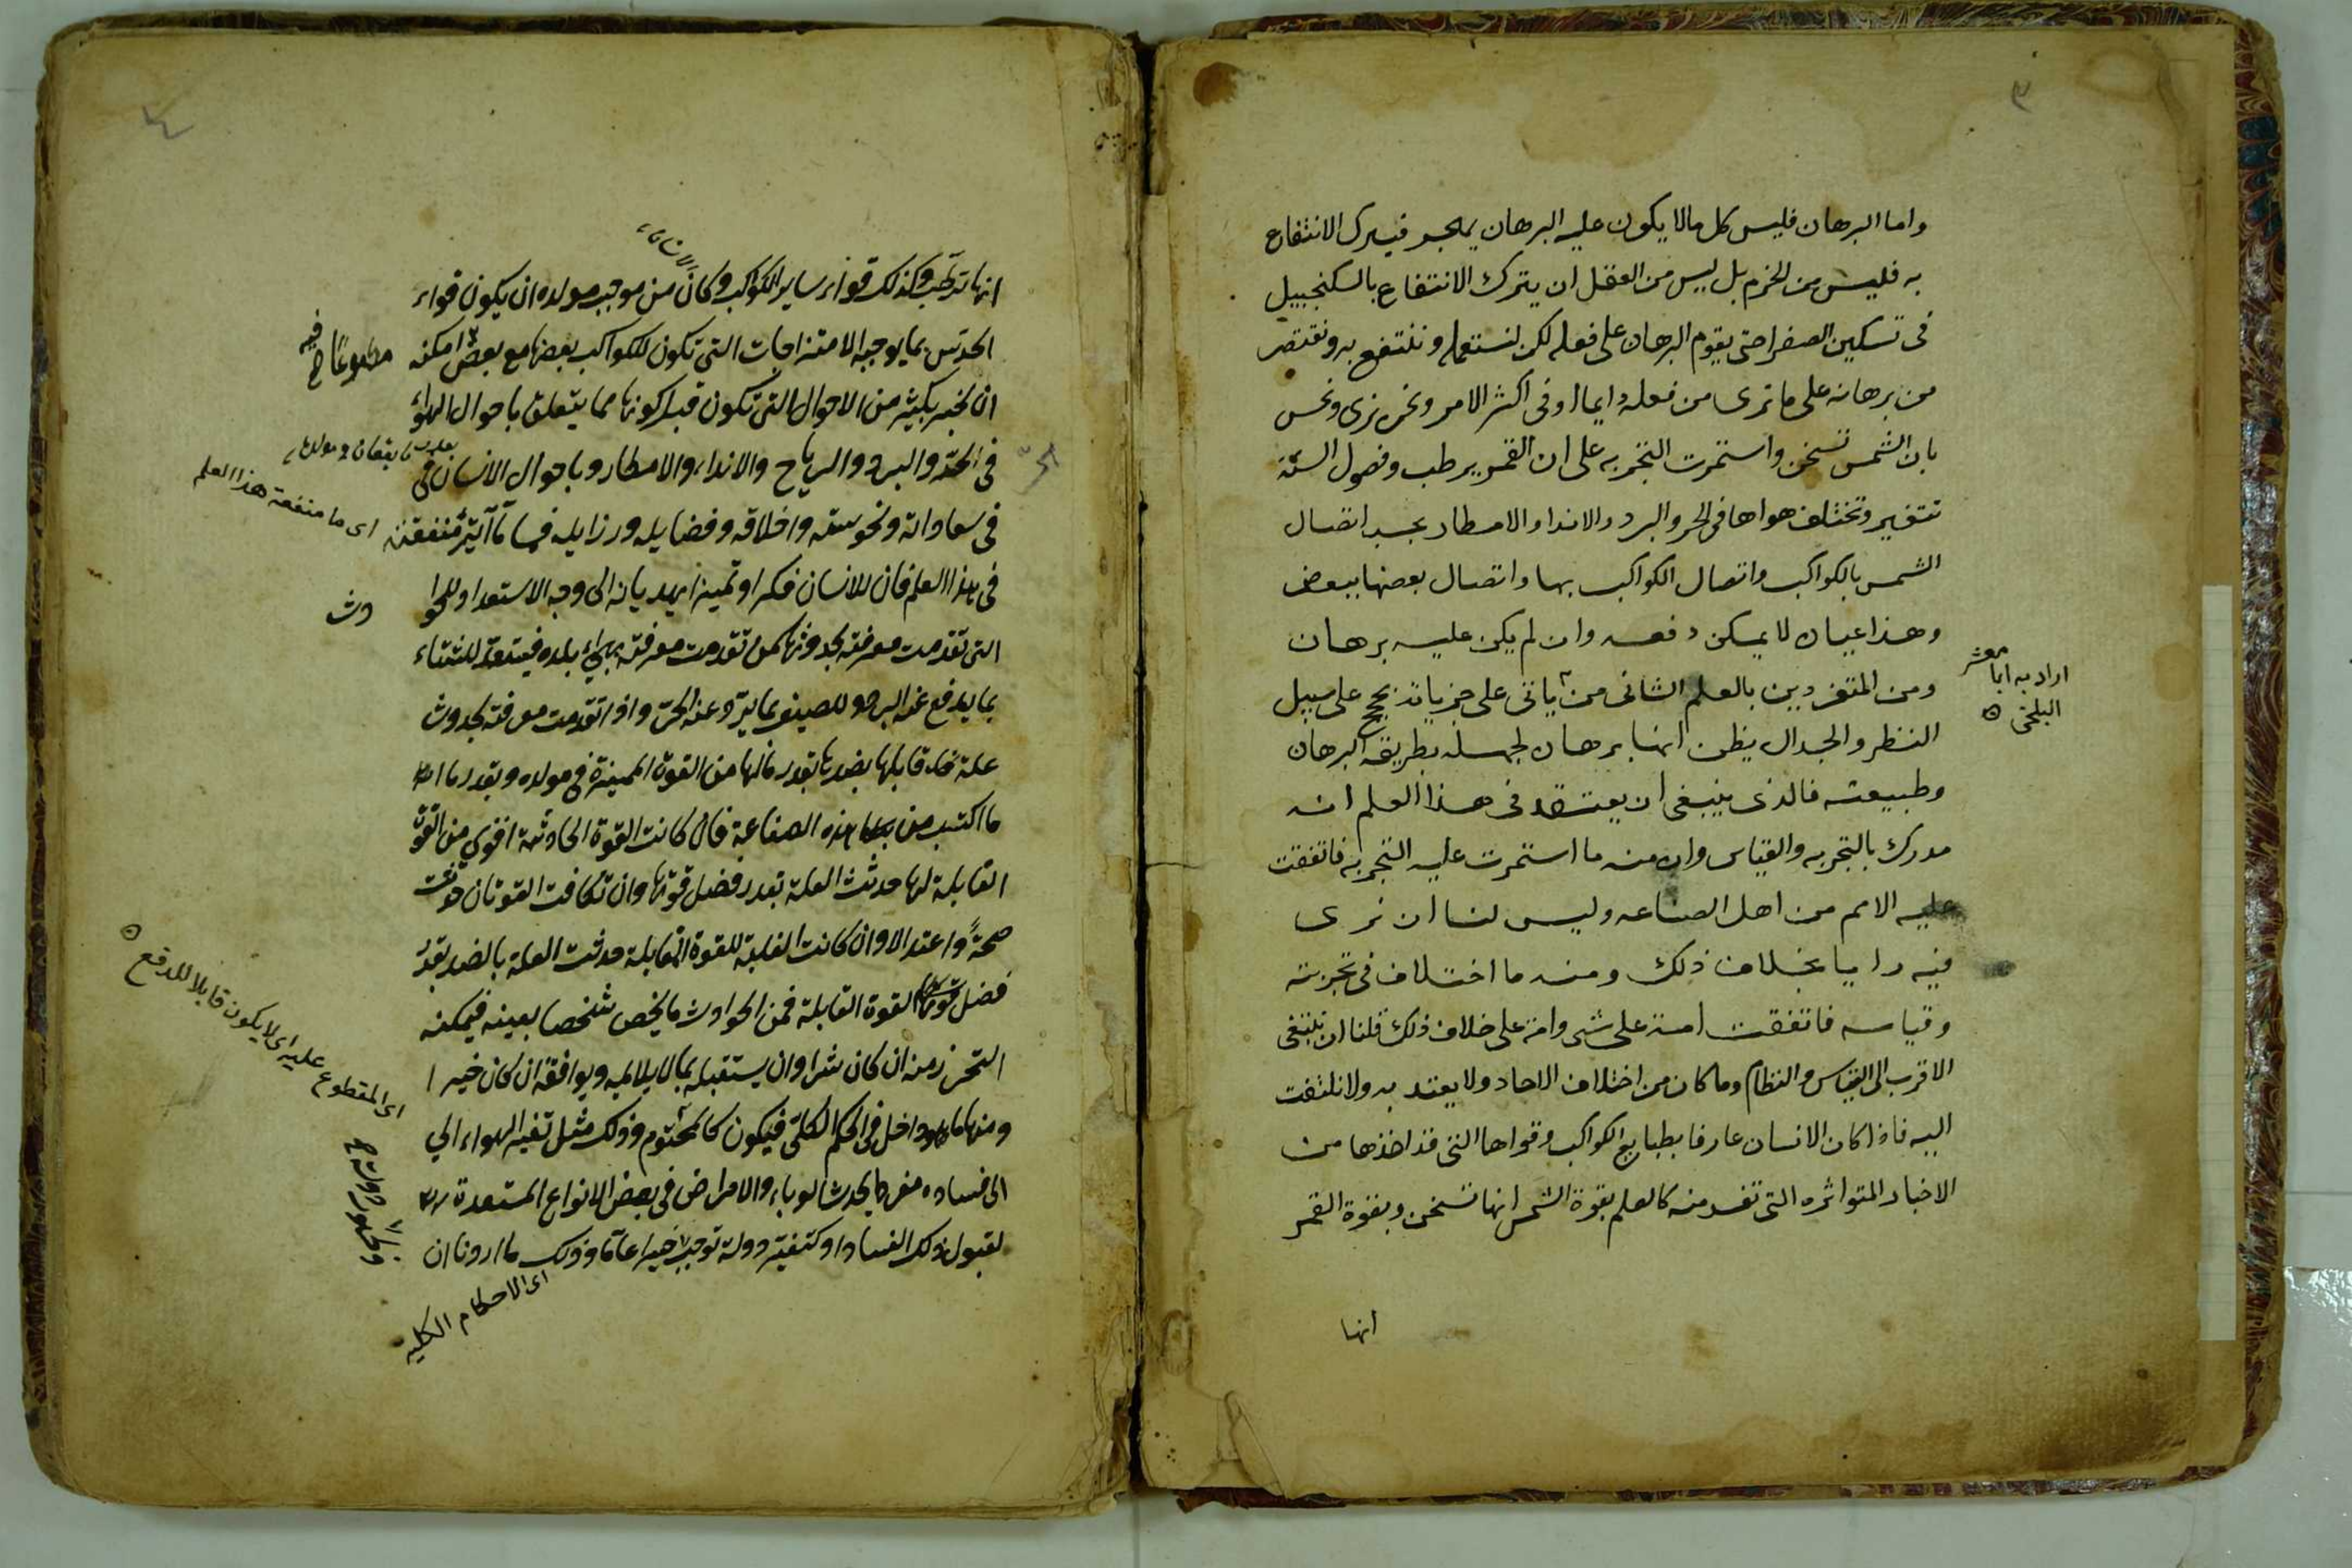 ٣
واما البرهان فليس كل مالا يكون عليه البرهان يهجر فيترك الانتفاع
به فليس من الحزم بل ليس من العقل ان يترك الانتفاع بالسكنجبيل
فى تسكين الصفرا حتى يقوم البرهان على فعله لكن نستعمله وننتفع به ونقتصر
من برهانه على ما نرى من فعله دايما او فى اكثر الامر ونحن نرى ونحس
بان الشمس تسخن واستمرت التجربه على ان القمر يرطب وفصول السنة
تتغير وتختلف هواها فى الحر والبرد والاندا والامطار بحسب اتصال
الشمس بالكواكب واتصال الكواكب بها واتصال بعضها ببعض
وهذا عيان لا يمكن دفعه وان لم يكن عليه برهان
ومن المتفردين بالعلم الثانى من ياتى على جزياته بحجج على سبيل
اراد به ابا معشر
البلخى
النظر والجدال يظن انها برهان لجهله بطريقه البرهان
وطبيعته فالذى ينبغى ان يعتقد فى هذا العلم انه
مدرك بالتجربه والقياس وان منه ما استمرت عليه التجربه فاتفقت
عليه الامم من اهل الصناعه وليس لنا ان نرى
فيه رايا بخلاف ذلك ومنه ما اختلاف فى تجربته
وقياسه فاتفقت امة على شى وامة على خلاف ذلك قلنا ان نبتغى
الاقرب الى القياس والنظام وما كان من اختلاف الاحاد ولا يعتد به ولا نلتفت
اليه فاذا كان الانسان عارفا بطبايع الكواكب وقواها التى قد اخذها من
الاخبار المتواتره التى تقدمته كالعلم بقوة الشمس انها تسخن وبقوة القمر
انها
٤
انها ترطب وكذلك قواء ساير الكواكب وكان من موجب مولده ان يكون قواء
الحدس بما يوجبه الامتزاجات التى تكون للكواكب بعضها مع بعض امكنه
مطبوعا فيه
ان يخبر بكثير من الاحوال التى تكون قبل كونها مما يتعلق باحوال الهواء
فى الحر والبرد والرياح والانداء والامطار وباحوال الانسان فى
فى سعاداته ونحوسته واخلاقه وفضايله ورزايله
اى ما منفعة هذا العلم
فى هذا العلم فان للانسان فكرا وتميزا يهديانه الى وجه الاستعداد للحوا
دث
التى تقدمت معرفته بحدوثها كمن تقدمت معرفته بهواء بلده فيستعد للشتاء
بما يدفع عنه البرد وللصيف بما يبرد عنه الحر واذا تقدمت معرفته بحدوث
علة قابلها بضدها بقدر مالها من القوة المميزة فى مولده وبقدر ما
ما اكتسب من هذه الصناعة فان كانت القوة الحادثة اقوى من القوة
القابلة لها حدثت العلة بقدر فضل قوتها وان تكافت القوتان حدثت
صحة واعتدالا وان كانت الغلبة للقوة القابلة حدثت العلة بالضد بقدر
فضل القوة القابلة فمن الحوادث ما يخص شخصا بعينه فيمكنه
التحرز منه ان كان شرا وان يستقبله بما يلايمه ويوافقه ان كان خيرا
ومنها ما هو داخل فى الحكم الكلى فيكون كالمحتوم وذلك مثل تغير الهواء الى
اى المقطوع عليه اى لا يكون قابلا للدفع
الى فساده يحدث الوباء والامراض فى بعض الانواع المستعدة
لقبول ذلك الفساد او كتغير دولة توجب خيرا عاما وذلك ما اردنا ان
اى الاحكام الكليه